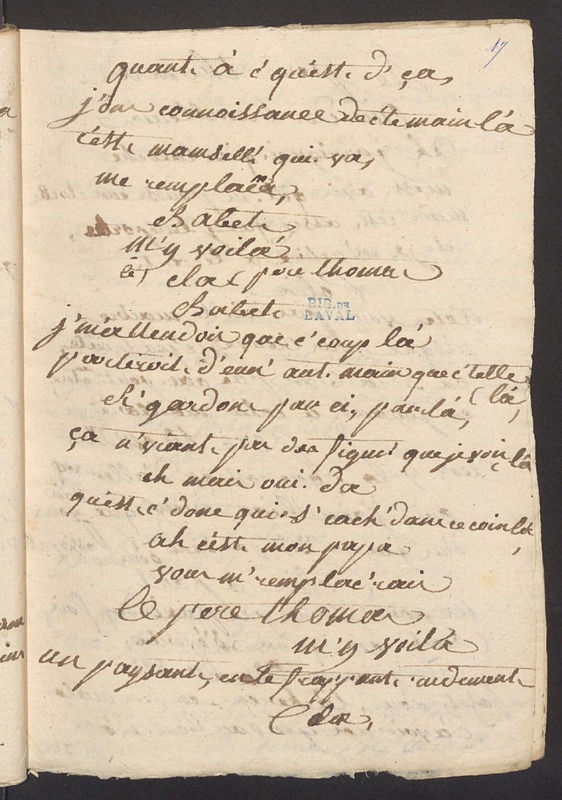 17
quant à c'qu'est d'ça,
j'ons connoissance de c'te main là
c'est mamsell' qui va,
me remplacer,
Babet
m'y voilà
clac pere thomas
Babet
BIB. DE
LAVAL
j'm'attendois que c'coup là
partiroit d'eun' aut. main que c'telle
là,
r'gardons par ci, par là,
ça n'vient pas des figur' que je vois là
eh mais oui da
qu'est c'donc qui s'cach' dans ce coin là,
ah c'est mon papa
vous m'remplac'rais
le pere thomas
m'y voilà
un paysant, en le frappant rudement
clac,